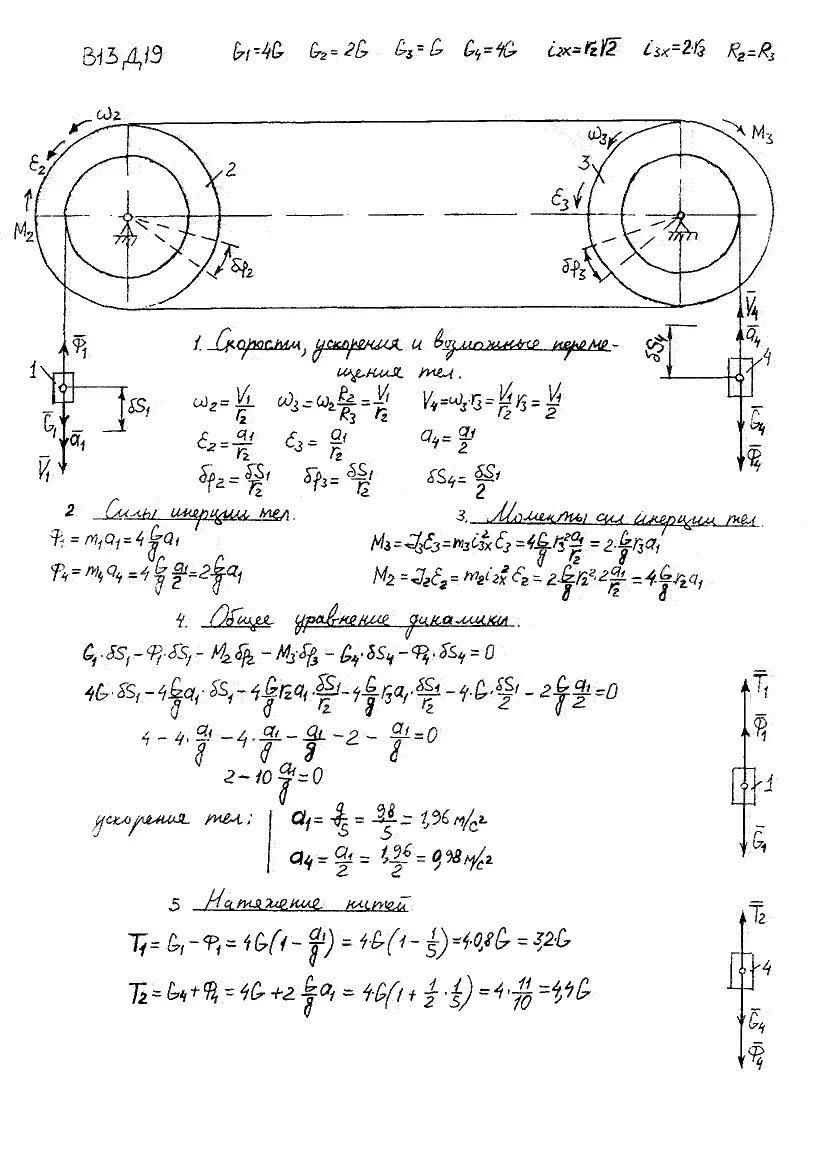 В13 Д19 G₁=4G G₂=2G G₃=G G₄=4G i₂ₓ=r₂√2 i₃ₓ=2·r₃ R₂=R₃
ω₂
ε₂
M₂
2
δφ₂
ω₃
M₃
3
ε₃
δφ₃
Φ̄₁
1
δS₁
Ḡ₁
ā₁
V̄₁
V̄₄
ā₄
δS₄
4
Ḡ₄
Φ̄₄
1. Скорости, ускорения и возможные переме-
щения тел.
ω₂=V₁/r₂ ω₃=ω₂R₂/R₃=V₁/r₂ V₄=ω₃r₃=V₁/r₂ r₃=V₁/2
ε₂=a₁/r₂ ε₃=a₁/r₂ a₄=a₁/2
δφ₂=δS₁/r₂ δφ₃=δS₁/r₂ δS₄=δS₁/2
2 Силы инерции тел.
Φ₁=m₁a₁=4G/g a₁
Φ₄=m₄a₄=4G/g a₁/2=2G/g a₁
3. Моменты сил инерции тел.
M₃=J₃ε₃=m₃i₃ₓ²ε₃=4G/g r₃²a₁/r₂=2·G/g r₃a₁
M₂=J₂ε₂=m₂i₂ₓ²ε₂=2·G/g r₂²·2a₁/r₂=4·G/g·r₂a₁
4. Общее уравнение динамики.
G₁·δS₁-Φ₁·δS₁-M₂δφ₂-M₃·δφ₃-G₄·δS₄-Φ₄·δS₄=0
4G·δS₁-4G/g a₁·δS₁-4G/g r₂a₁·δS₁/r₂-4G/g r₃a₁·δS₁/r₂-4·G·δS₁/2-2G/g a₁/2=0
4-4·a₁/g-4·a₁/g-a₁/g-2-a₁/g=0
2-10a₁/g=0
ускорения тел: a₁=g/5=9,8/5=1,96 м/с²
a₄=a₁/2=1,96/2=0,98 м/с²
5 Натяжение нитей
T₁=G₁-Φ₁=4G(1-a₁/g)=4G(1-1/5)=4·0,8G=3,2·G
T₂=G₄+Φ₄=4G+2G/g a₁=4G(1+1/2·1/5)=4·11/10=4,4G
T̄₁
Φ̄₁
1
Ḡ₁
T̄₂
4
Ḡ₄
Φ̄₄